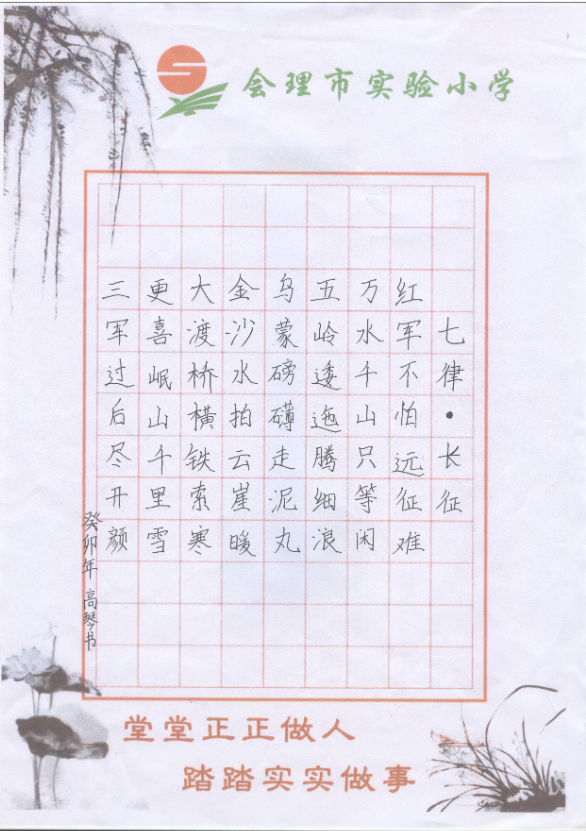 会理市实验小学
七律·长征
红军不怕远征难
万水千山只等闲
五岭逶迤腾细浪
乌蒙磅礴走泥丸
金沙水拍云崖暖
大渡桥横铁索寒
更喜岷山千里雪
三军过后尽开颜
癸卯年 高琴书
堂堂正正做人
踏踏实实做事